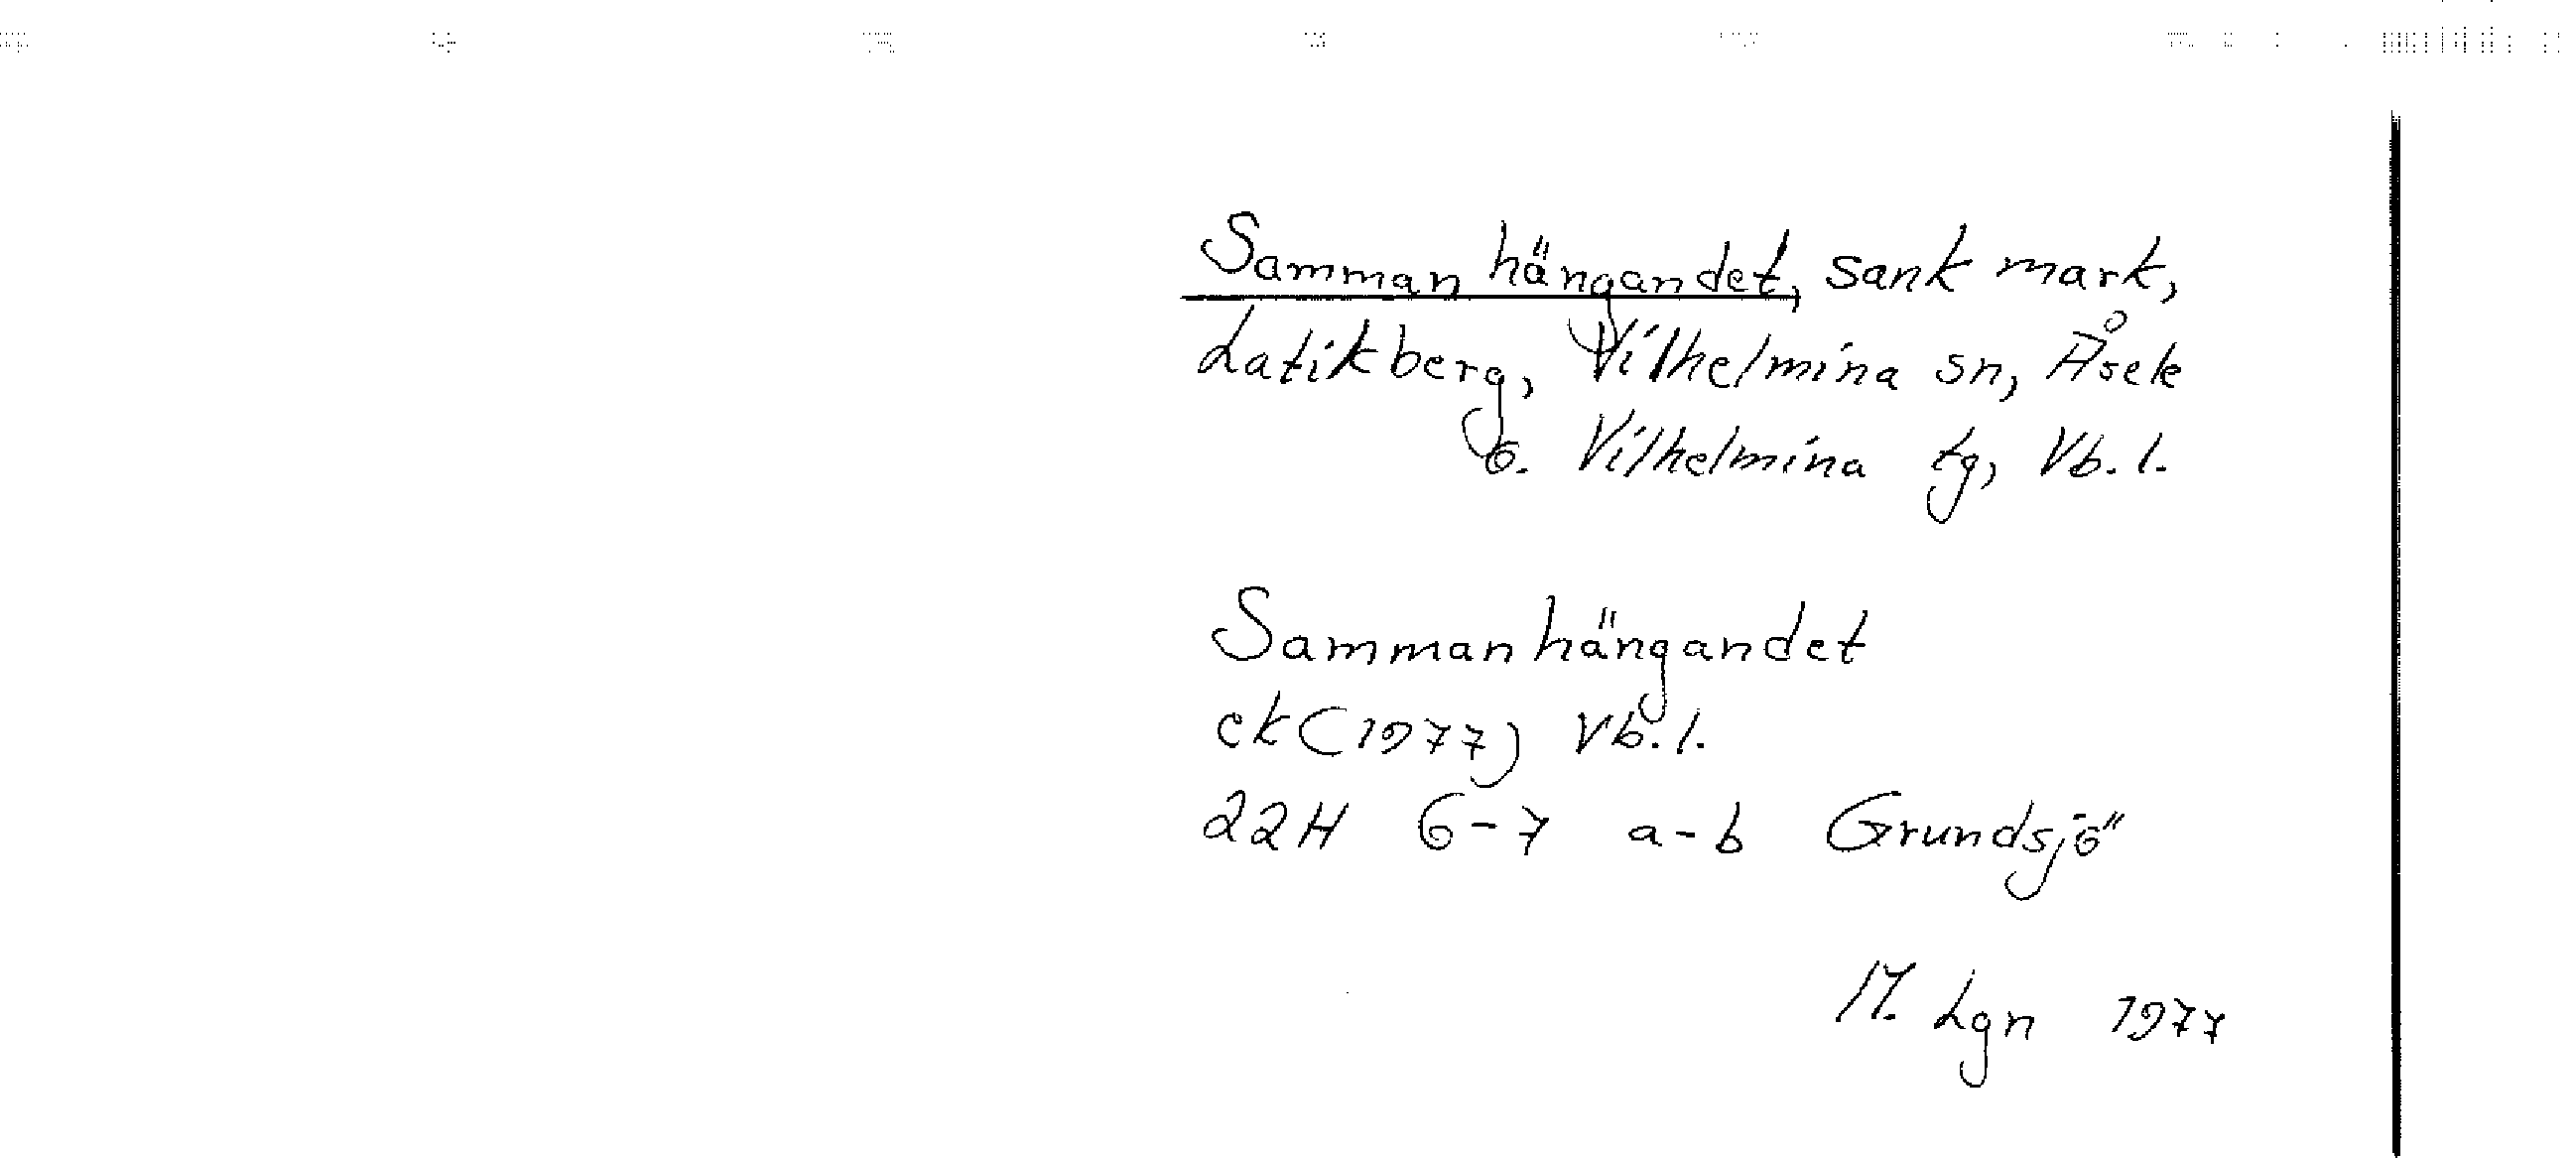 Sammanhängandet, sank mark,
Latikberg, Vilhelmina sn, Åsele
o. Vilhelmina tg, Vb. l.
Sammanhängandet
ek (1977) Vb. l.
22H 6-7 a-b Grundsjö
M. Lgn 1977